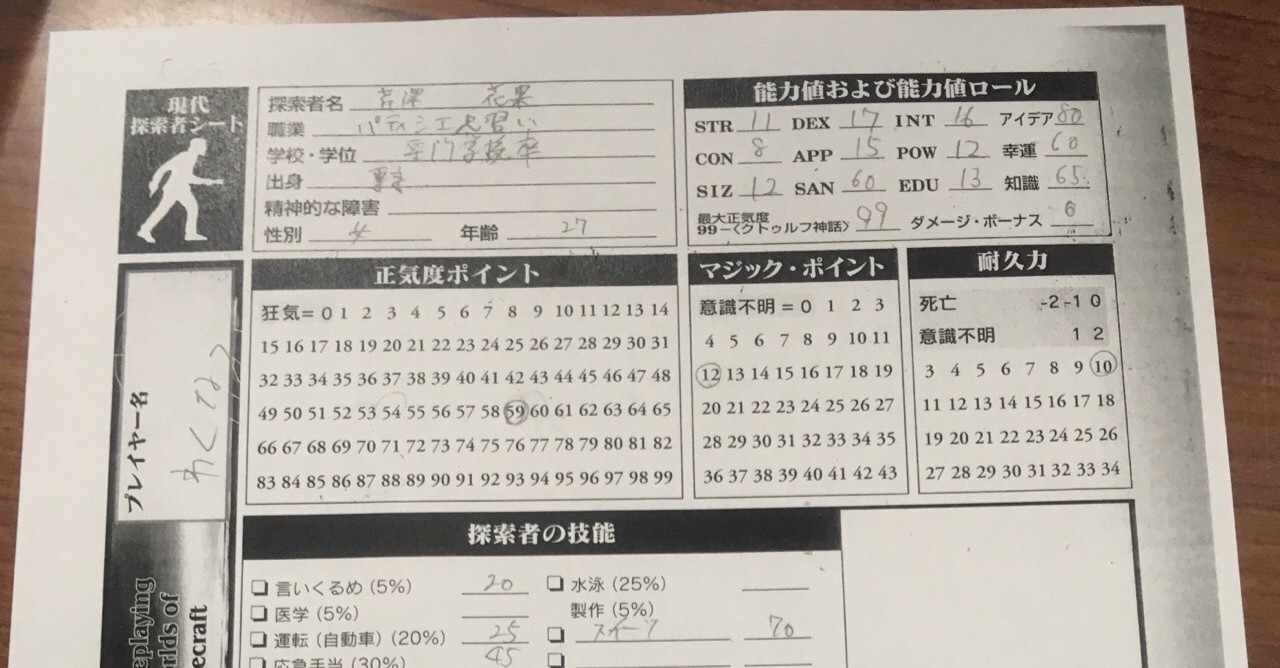 現代
探索者シート
探索者名 芹澤 花果
職業 パティシエ見習い
学校・学位 専門学校卒
出身 東京
精神的な障害
性別 女 年齢 27
能力値および能力値ロール
STR 11 DEX 17 INT 16 アイデア 80
CON 8 APP 15 POW 12 幸運 60
SIZ 12 SAN 60 EDU 13 知識 65
最大正気度
99-〈クトゥルフ神話〉 99 ダメージ・ボーナス 0
プレイヤー名
正気度ポイント
狂気=0 1 2 3 4 5 6 7 8 9 10 11 12 13 14
15 16 17 18 19 20 21 22 23 24 25 26 27 28 29 30 31
32 33 34 35 36 37 38 39 40 41 42 43 44 45 46 47 48
49 50 51 52 53 54 55 56 57 58 59 60 61 62 63 64 65
66 67 68 69 70 71 72 73 74 75 76 77 78 79 80 81 82
83 84 85 86 87 88 89 90 91 92 93 94 95 96 97 98 99
マジック・ポイント
意識不明=0 1 2 3
4 5 6 7 8 9 10 11
12 13 14 15 16 17 18 19
20 21 22 23 24 25 26 27
28 29 30 31 32 33 34 35
36 37 38 39 40 41 42 43
耐久力
死亡 -2 -1 0
意識不明 1 2
3 4 5 6 7 8 9 10
11 12 13 14 15 16 17 18
19 20 21 22 23 24 25 26
27 28 29 30 31 32 33 34
探索者の技能
言いくるめ (5%) 20
医学 (5%)
運転 (自動車) (20%) 25
応急手当 (30%) 45
水泳 (25%)
製作 (5%)
スイーツ 70
eplaying
rlds of
ecraft